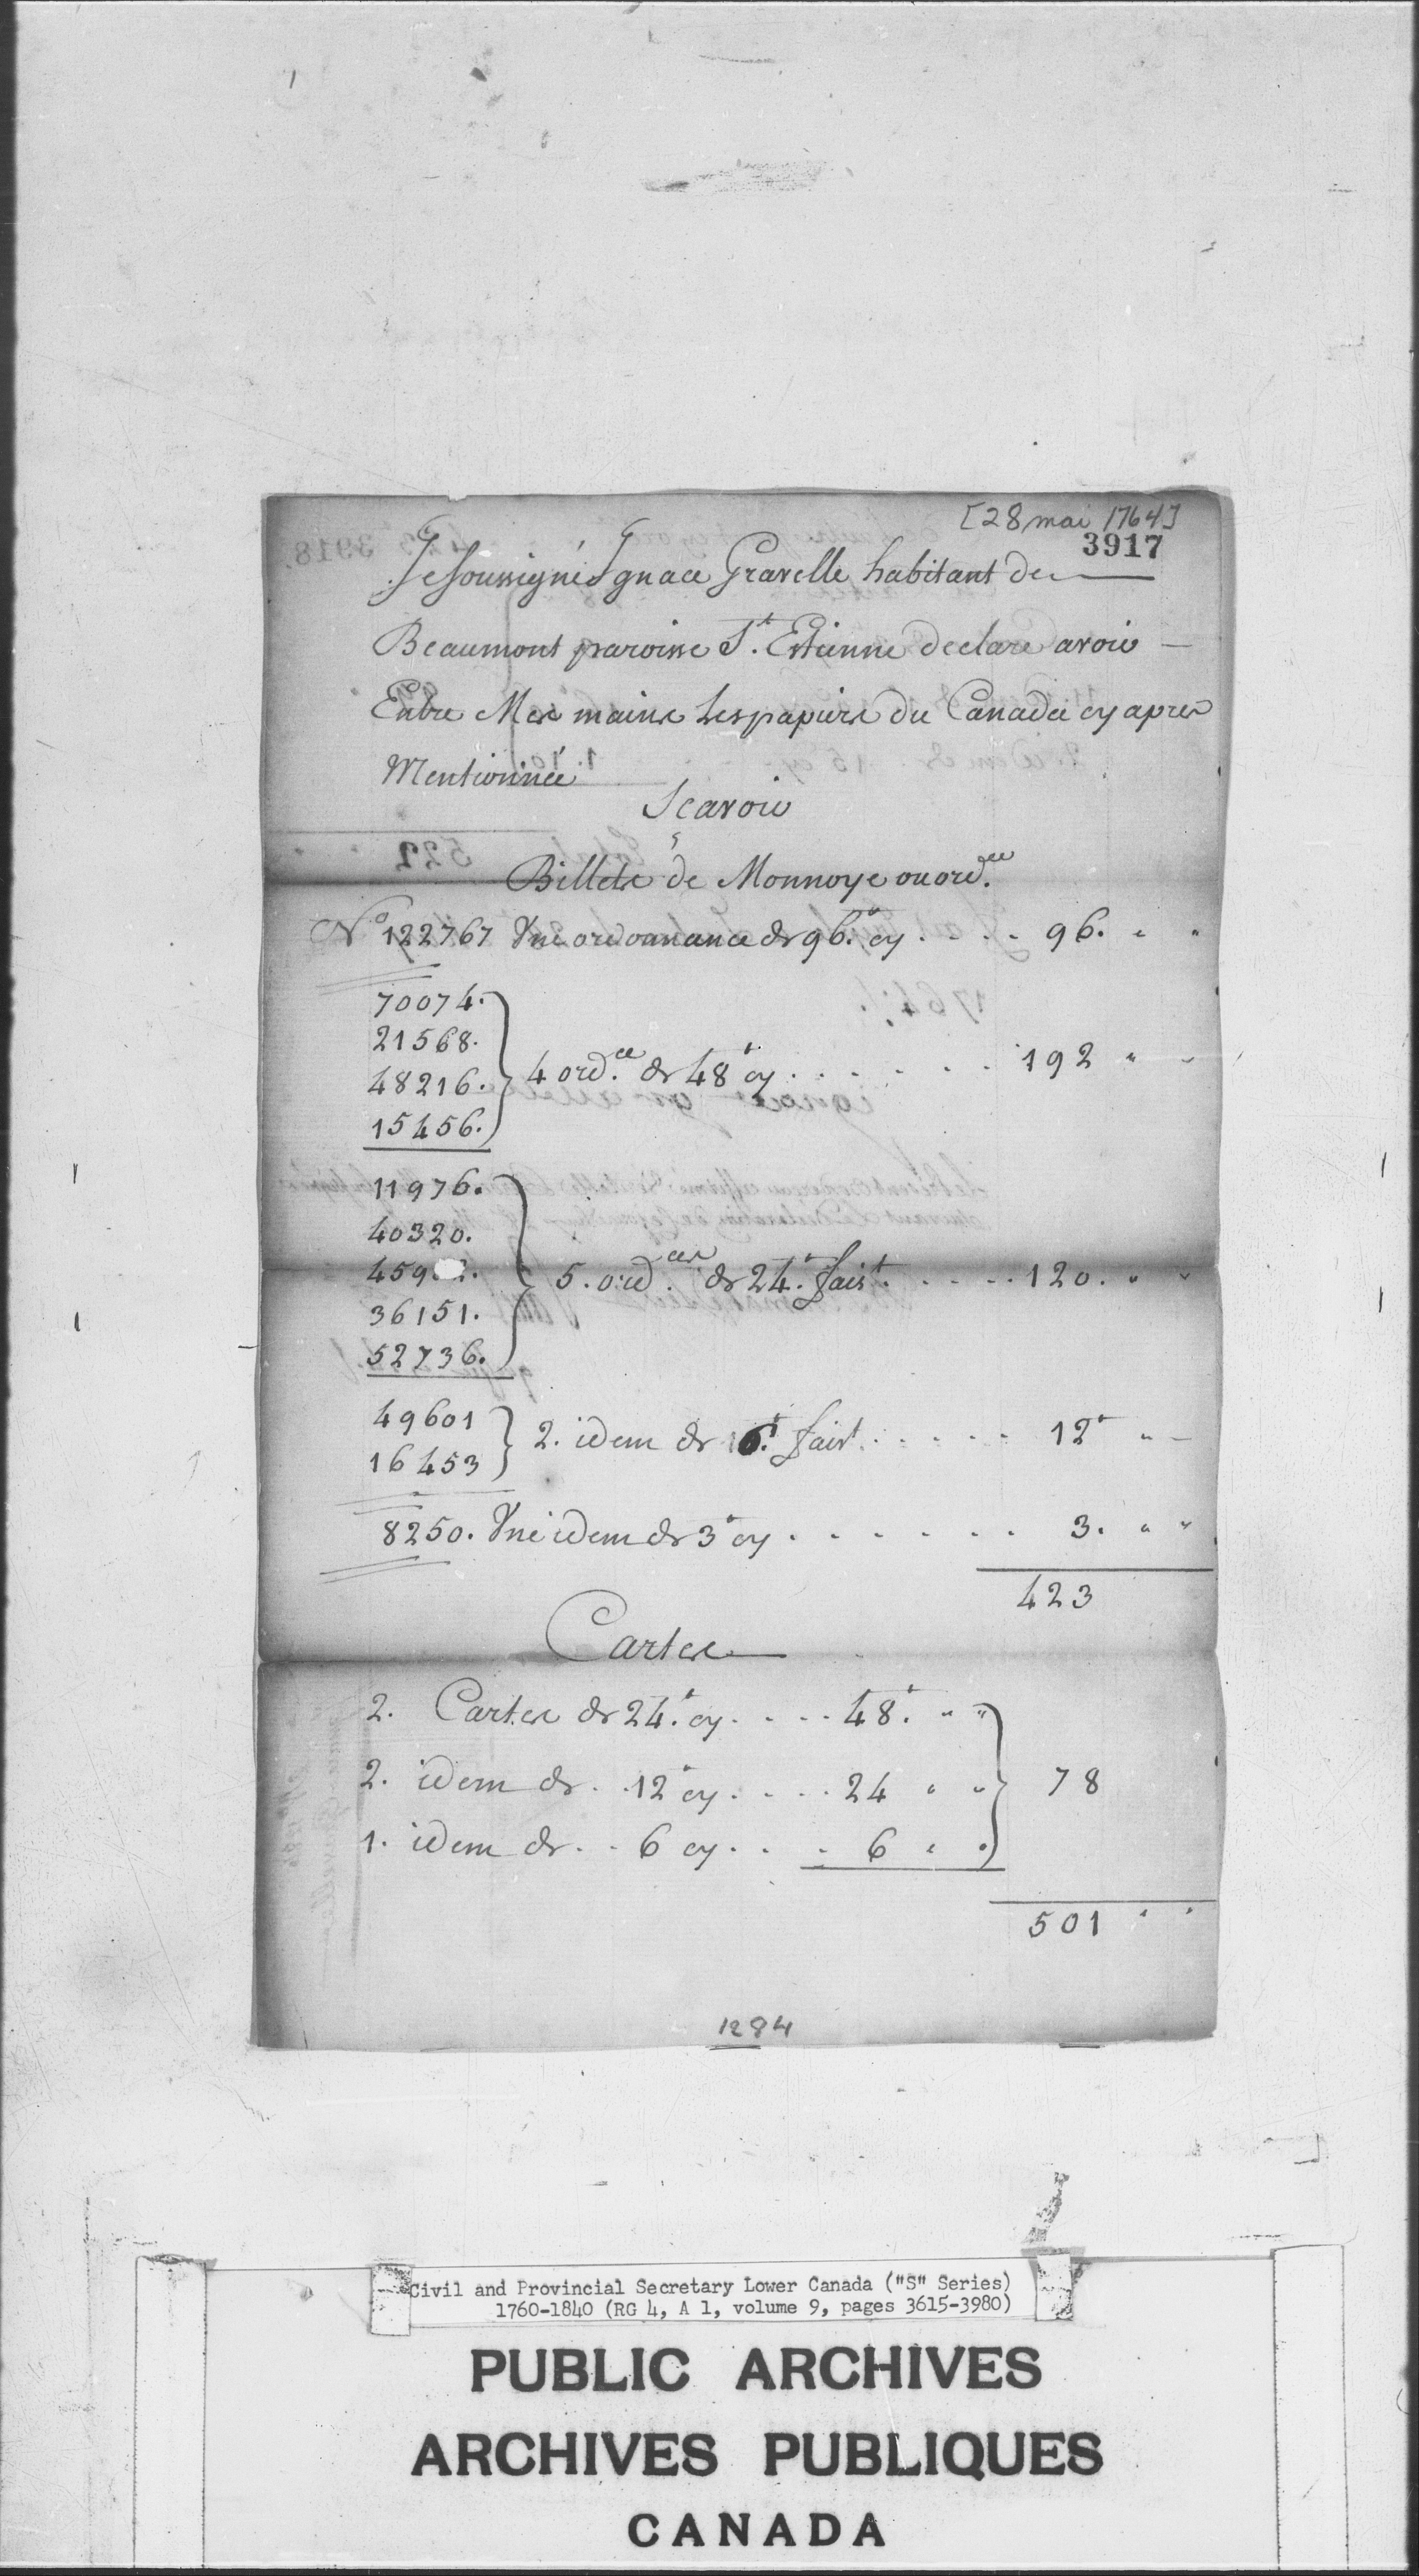 [28 mai 1764]
3917
Je soussigné Ignace Gravelle habitant de
Beaumont paroisse St. Estienne declare avoir
Entre Mes mains Les papiers du Canada cy apres
Mentionnée
Scavoir
Billets de Monnoye ou ord.ce
No 122767 Une ordonnance de 96.t cy . . . . 96. " "
70074.
21568.
48216. 4 ord.ce de 48t cy . . . . . . . 192 " "
15456.
11976.
40320.
459 2. 5. ord.ces de 24.t fait . . . . . 120. " "
36151.
52736.
49601
16453 2. idem de 6.t fait . . . . . . 12t " "
8250. Une idem de 3t cy . . . . . . . 3. " "
423
Cartes
2. Cartes de 24.t cy . . . . 48.t " "
2. idem de . . 12t cy . . . . 24 " " 78
1. idem de . . 6 cy . . . 6 " "
501 " "
1284
Civil and Provincial Secretary Lower Canada ("S" Series)
1760-1840 (RG 4, A 1, volume 9, pages 3615-3980)
PUBLIC ARCHIVES
ARCHIVES PUBLIQUES
CANADA